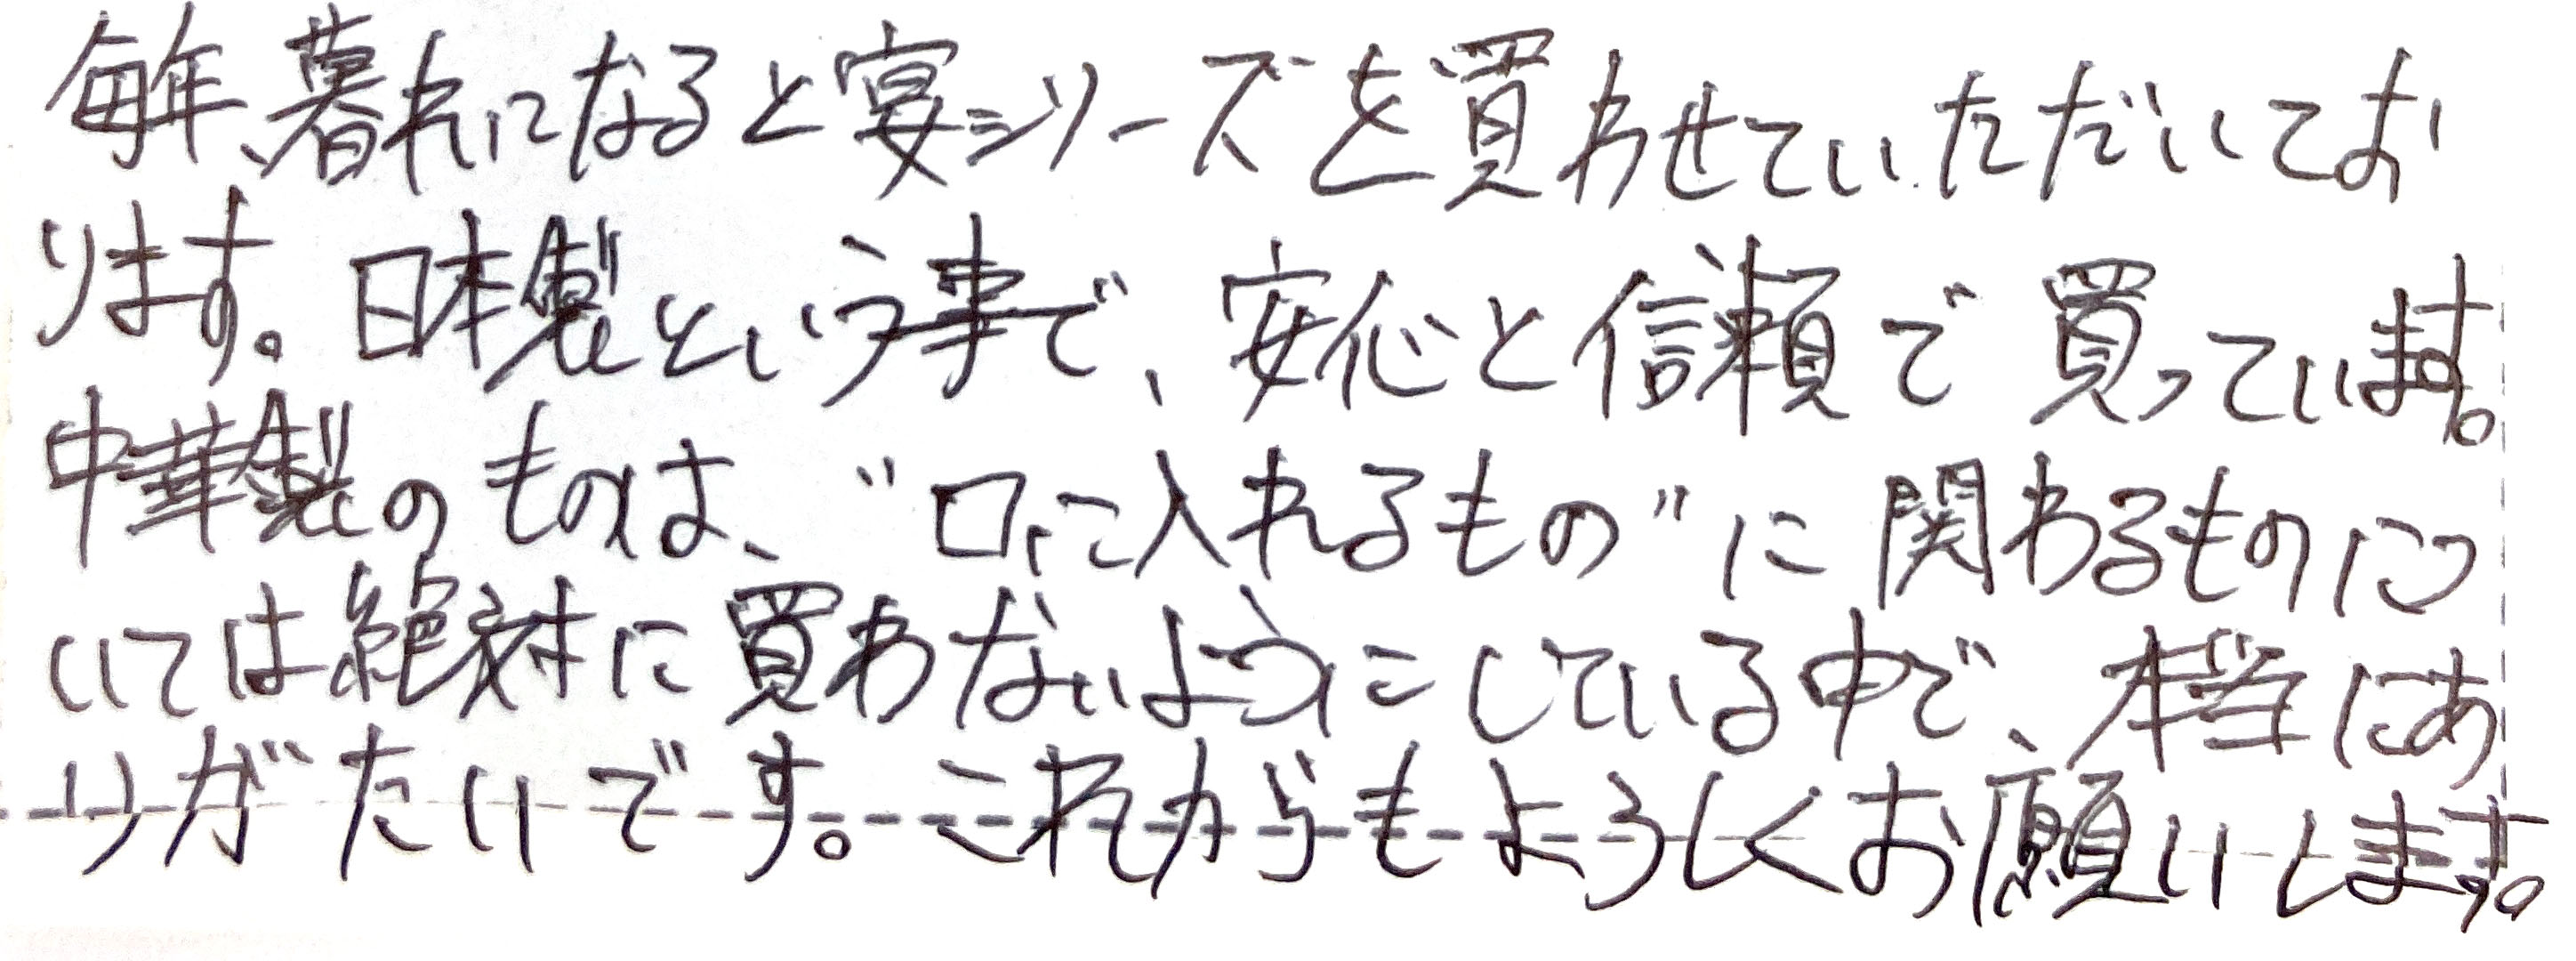 毎年、暮れになると宴シリーズを買わせていただいてお
ります。日本製という事で、安心と信頼で買っています。
中華製のものは、"口に入れるもの"に関わるものにつ
いては絶対に買わないようにしている中で、本当にあ
りがたいです。これからもよろしくお願いします。